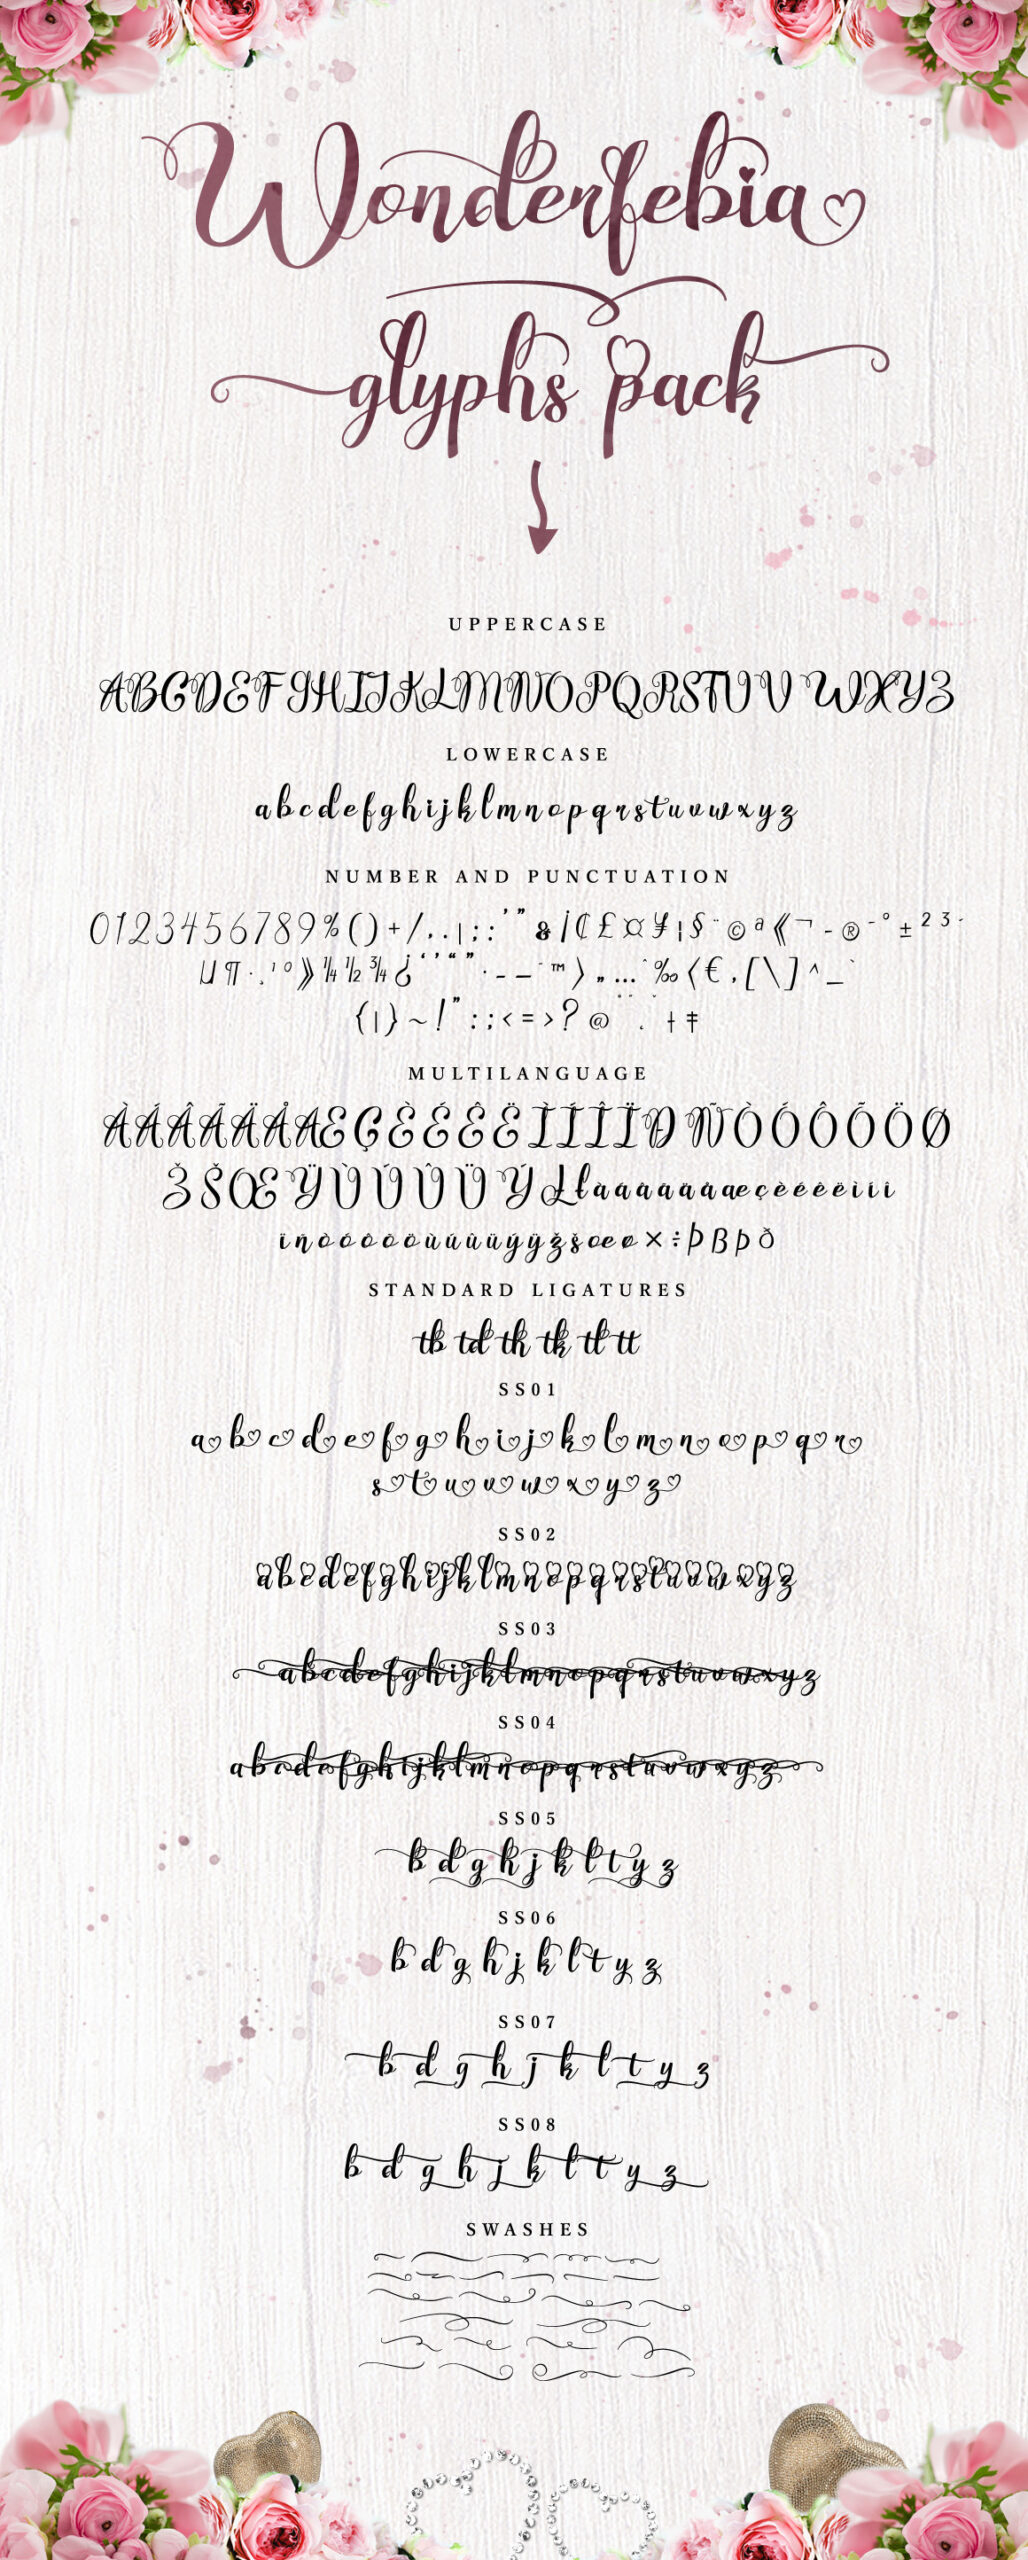 Wonderfebia
glyphs pack
UPPERCASE
ABCDEFGHIJKLMNOPQRSTUVWXYZ
LOWERCASE
abcdefghijklmnopqrstuvwxyz
NUMBER AND PUNCTUATION
0123456789%()+/,.|;:'"&¡₵£¤¥¦§¨©ª«¬-®¯°±²³´
µ¶·¸¹º»¼½¾¿‘’“”•–—˜™›„…ˆ‰‹€‚[\]^_`
{|}~!":;<=>?@ †‡
MULTILANGUAGE
ÀÁÂÃÄÅÆÇÈÉÊËÌÍÎÏÐÑÒÓÔÕÖØ
ŽŠŒŸÙÚÛÜÝŁłàáâãäåæçèéêëìíî
ïñòóôõöùúûüýÿžšœø×÷Þßþð
STANDARD LIGATURES
tb td th tk tl tt
SS01
abcdefghijklmnopqr
stuvwxyz
SS02
abcdefghijklmnopqrstuvwxyz
SS03
abcdefghijklmnopqrstuvwxyz
SS04
abcdefghijklmnopqrstuvwxyz
SS05
bdghjkltyz
SS06
bdghjkltyz
SS07
bdghjkltyz
SS08
bdghjkltyz
SWASHES